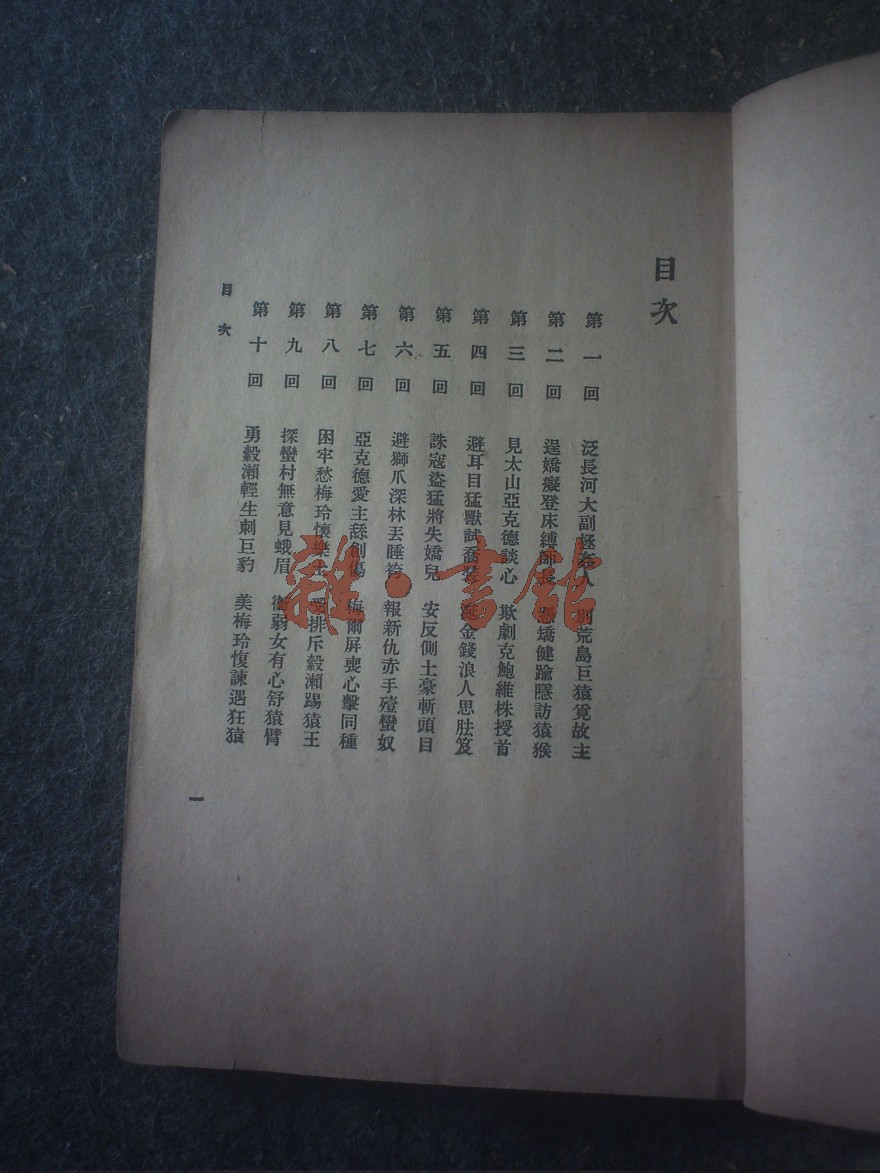 目次
第一回 泛長河大副拯焱人 別荒島巨猿覓故主
第二回 逞嬌癡登床縛師長 憑矯健踰隱訪猿猴
第三回 見太山亞克德談心 欺劇克鮑維株授首
第四回 避耳目猛獸試喬裝 涎金錢浪人思胠笈
第五回 誅寇盜猛將失嬌兒 安反側土豪斬頭目
第六回 避獅爪深林丟睡袴 報新仇赤手殪蠻奴
第七回 亞克德愛主舔創傷 梅爾屏喪心擊同種
第八回 困牢愁梅玲懷樂土 受排斥縠瀨踢猿王
第九回 探蠻村無意見蛾眉 衛弱女有心舒猿臂
第十回 勇縠瀨輕生刺巨豹 美梅玲愎諫遇狂猿
目次
一
雜·書館